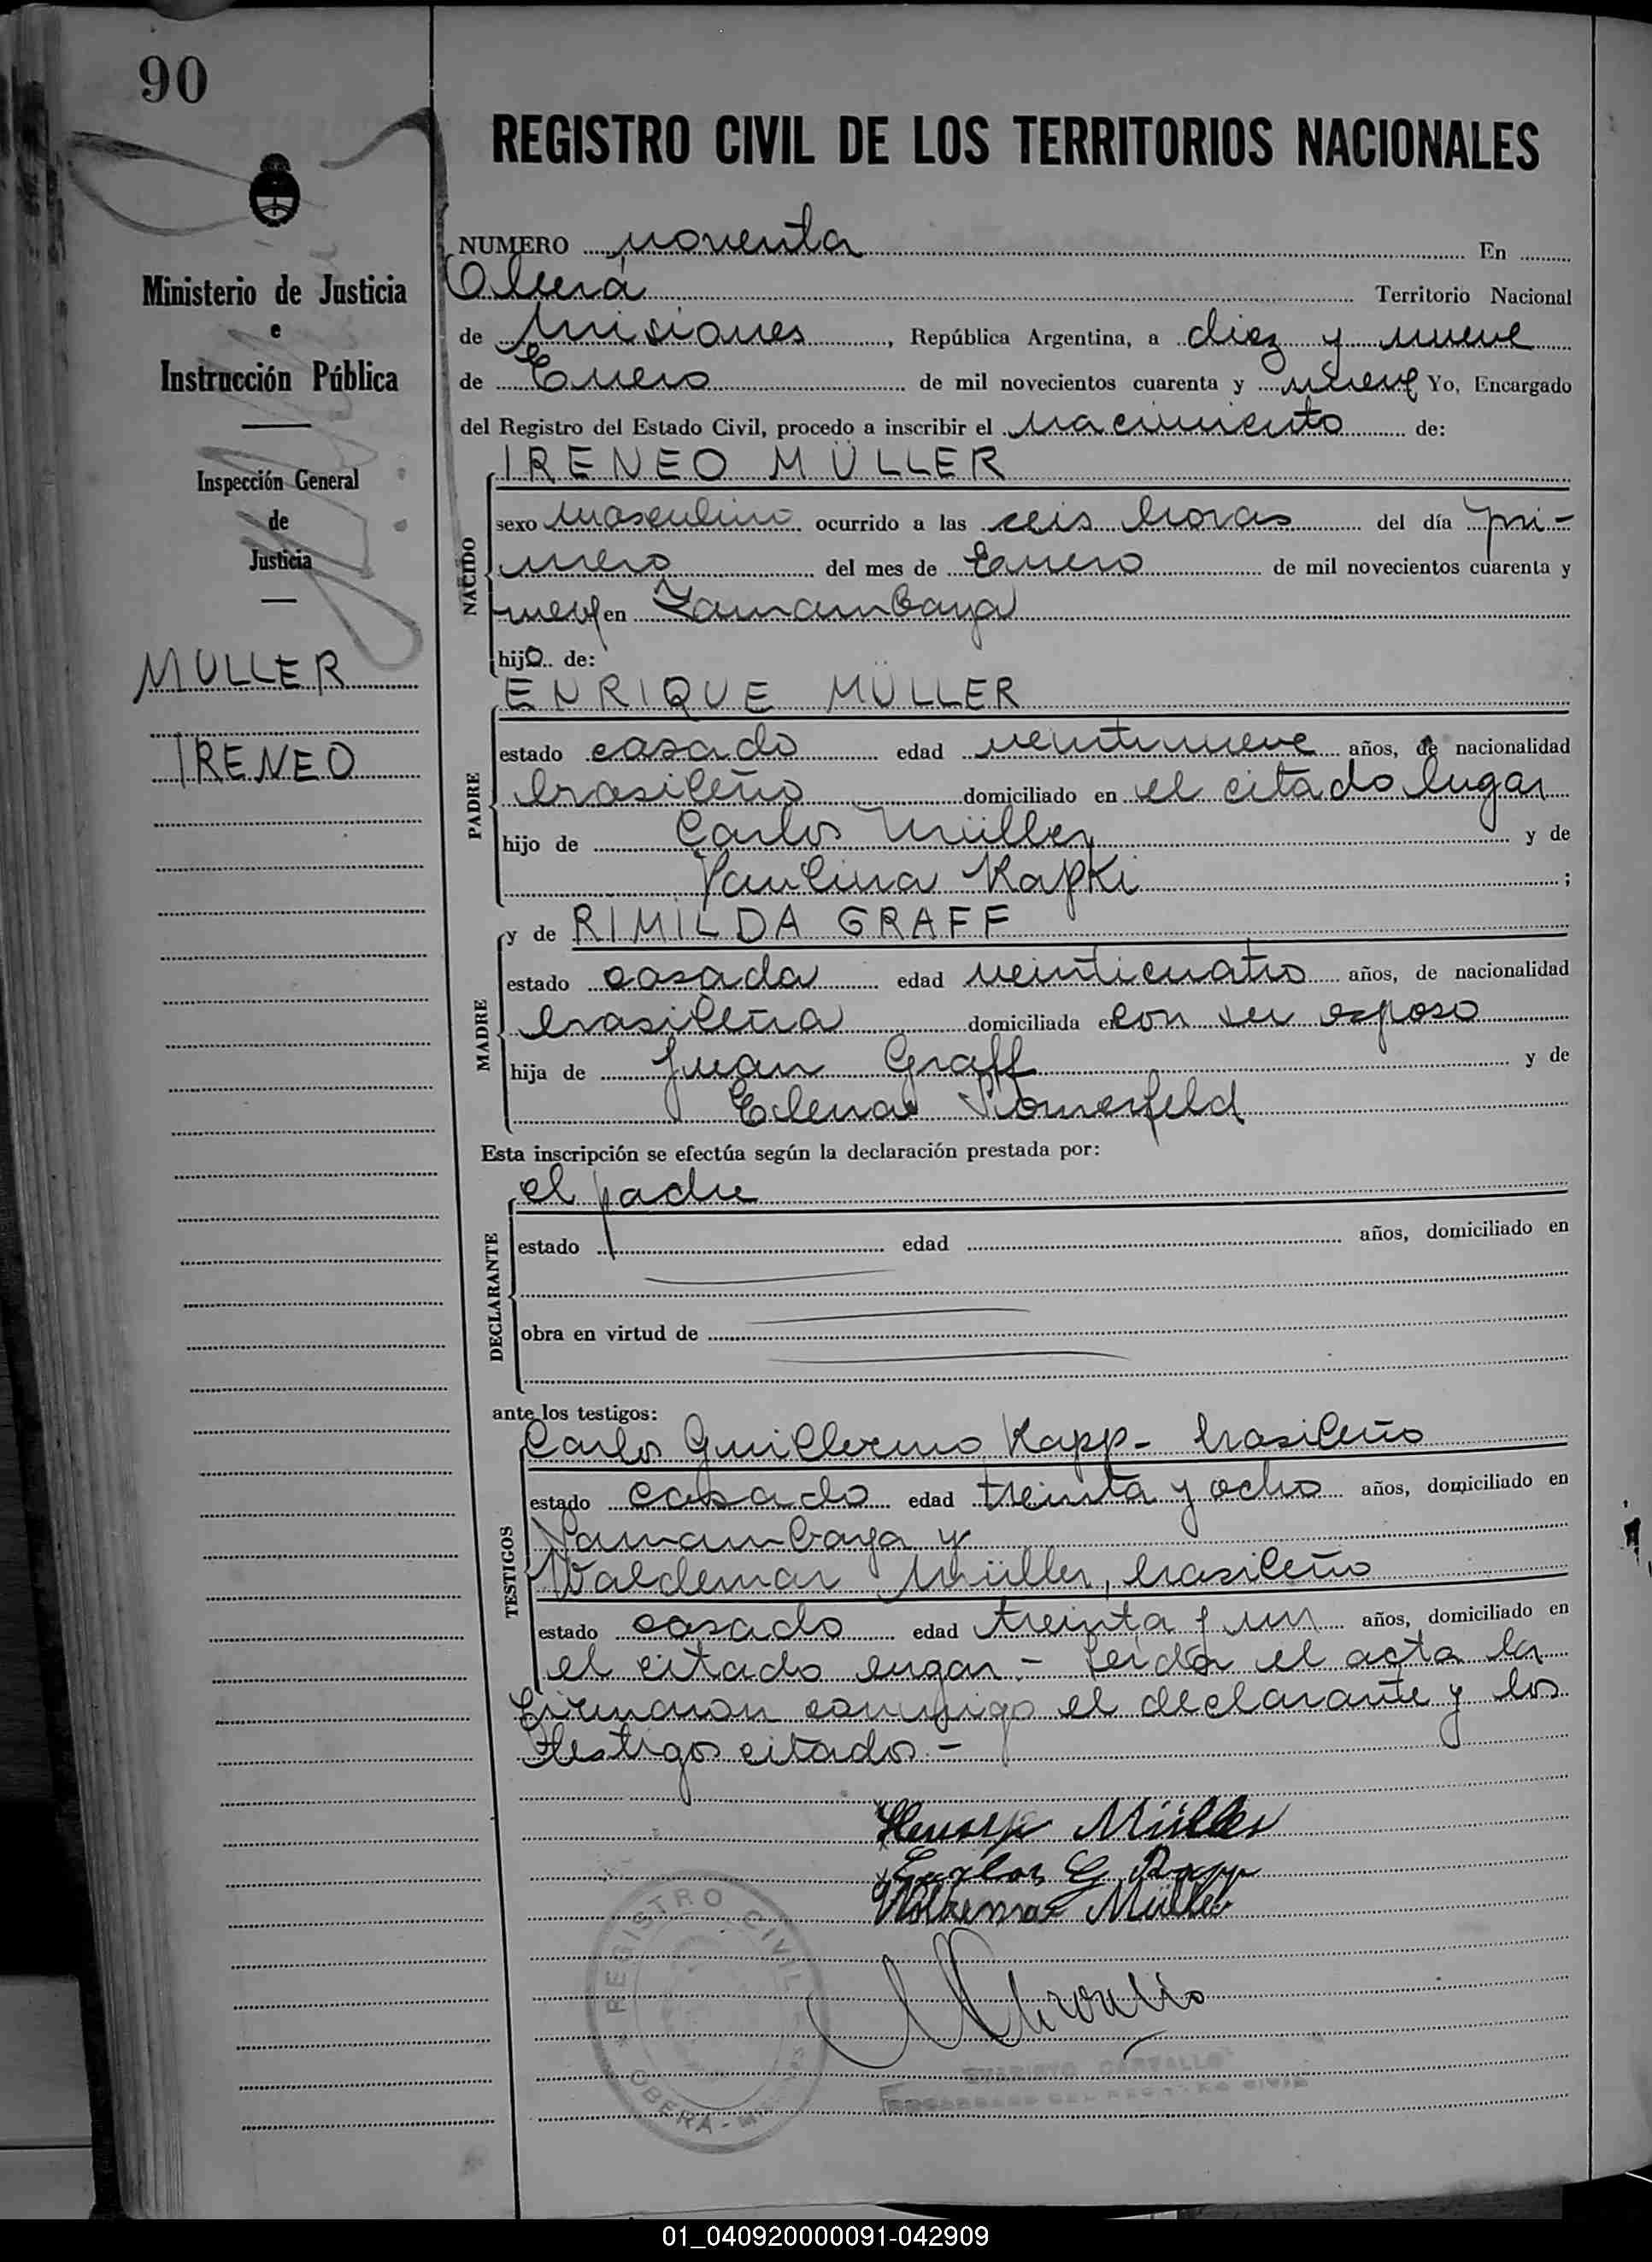 90
REGISTRO CIVIL DE LOS TERRITORIOS NACIONALES
Ministerio de Justicia
e
Instrucción Pública
Inspección General
de
Justicia
MULLER
IRENEO
NUMERO noventa En
Oberá Territorio Nacional
de Misiones, República Argentina, a diez y nueve
de Enero de mil novecientos cuarenta y nueve Yo, Encargado
del Registro del Estado Civil, procedo a inscribir el nacimiento de:
IRENEO MÜLLER
NACIDO
sexo masculino ocurrido a las seis horas del día pri-
mero del mes de Enero de mil novecientos cuarenta y
nueve en Yamambaya
hijo de:
ENRIQUE MÜLLER
PADRE
estado casado edad veintinueve años, de nacionalidad
brasileño domiciliado en el citado lugar
hijo de Carlos Müller y de
Paulina Kapki ;
y de RIMILDA GRAFF
MADRE
estado casada edad veinticuatro años, de nacionalidad
brasileña domiciliada en con su esposo
hija de Juan Graff y de
Elena
Esta inscripción se efectúa según la declaración prestada por:
el padre
DECLARANTE
estado edad años, domiciliado en
obra en virtud de
ante los testigos:
Carlos Guillermo Kapp - brasileño
TESTIGOS
estado casado edad treinta y ocho años, domiciliado en
Yamambaya y
Waldemar Müller, brasileño
estado casado edad treinta y un años, domiciliado en
el citado lugar - Leída el acta la
firmaron conmigo el declarante y los
testigos citados. -
Müller
Carlos G Kapp
Müller
REGISTRO CIVIL
OBERA - MISIONES
CARVALLO
ENCARGADO DEL REGISTRO CIVIL
01_040920000091-042909